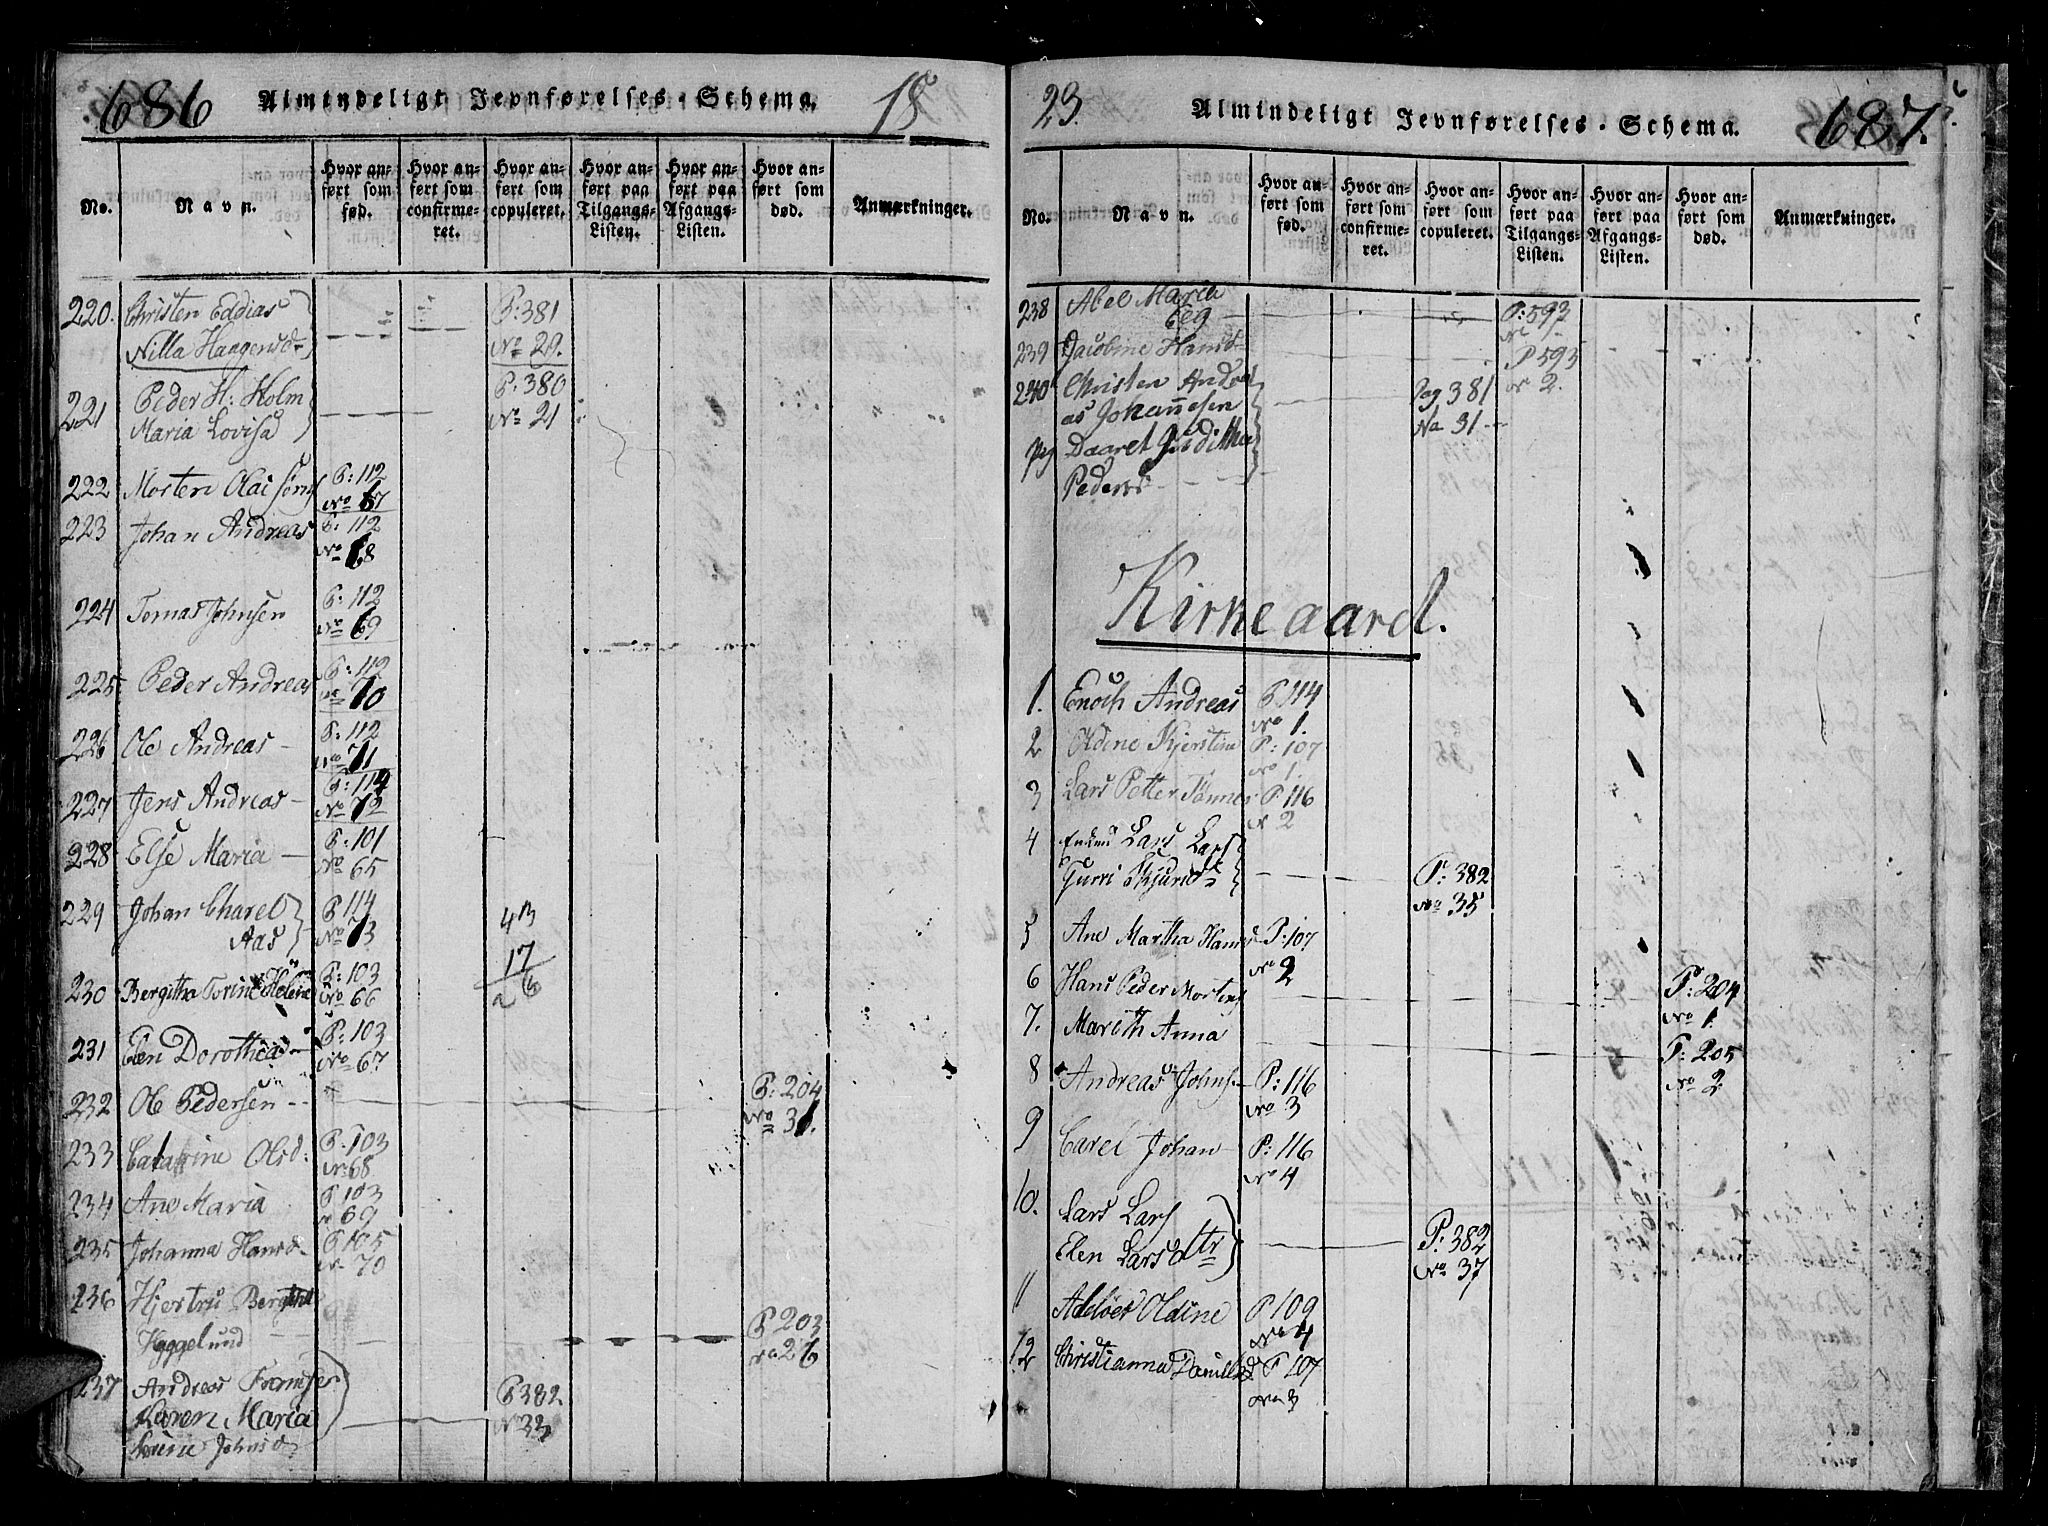 686 Almindeligt Jevnførelses-Schema. 18
No.
Navn.
Hvor anført som fød.
Hvor anført som confirmeret.
Hvor anført som copuleret.
Hvor anført paa Tilgangs-Listen.
Hvor anført paa Afgangs-Listen.
Hvor anført som død.
Anmærkninger.
220. Christen Eddias P: 381
Nilla Haagensd No 29.
221 Peder H: Holm P: 380
Maria Lovisa No 21
222 Morten Olai P: 112
No 67
223 Johan Andreas P: 112
No 68
224 Tomas Johnsen P: 112
No 69
225 Peder Andreas P: 112
No 70
226 Ole Andreas P: 112
No 71
227 Jens Andreas P: 114
No 72
228 Else Maria P: 101
No 65
229 Johan Charel P 114
Aas No 73
43
17
26
230 Bergitha Torine Helene P: 103
No 66
231 Elen Dorothea P: 103
No 67
232 Ole Pedersen P: 204
No 31.
233 Catarine Olsd: P: 103
No 68
234 Ane Maria P 103
No 69
235 Johanna Hansd P 105
No 70
236 Hjertru Berg
Heggelund P 203
No 26
237 Andreas
Karen Maria P 382
Johnsd No 33
23 Almindeligt Jevnførelses-Schema. 687.
No.
Navn.
Hvor anført som fød.
Hvor anført som confirmeret.
Hvor anført som copuleret.
Hvor anført paa Tilgangs-Listen.
Hvor anført paa Afgangs-Listen.
Hvor anført som død.
Anmærkninger.
238 Abel Maria P: 593
Eeg
239 Jacobine Hansd P 595
No 2.
240 Christen Andre
as Johannesen Pag 381
Daaret Juditha No 31
Peders
Kirkeaard.
1. Enoch Andreas P 114
No 1.
2 Oldine Kjerstine P: 107
No 1.
3 Lars Petter Tönnes P. 116
N 2
4 Lars Lars
Gurri P: 382
No 35
5 Ane Martha Hans P: 107
No 2
6 Hans Peder Mortens P: 204
No 1.
7. Marith Anna P: 205
No 2
8 Andreas Johns P: 116
No 3
9 Carel Johan P: 116
No 4
10. Lars Lars
Elen Larsdtr P: 382
No 37
11 Oldine P 109
No 4
12 Christianna P 107
No 3